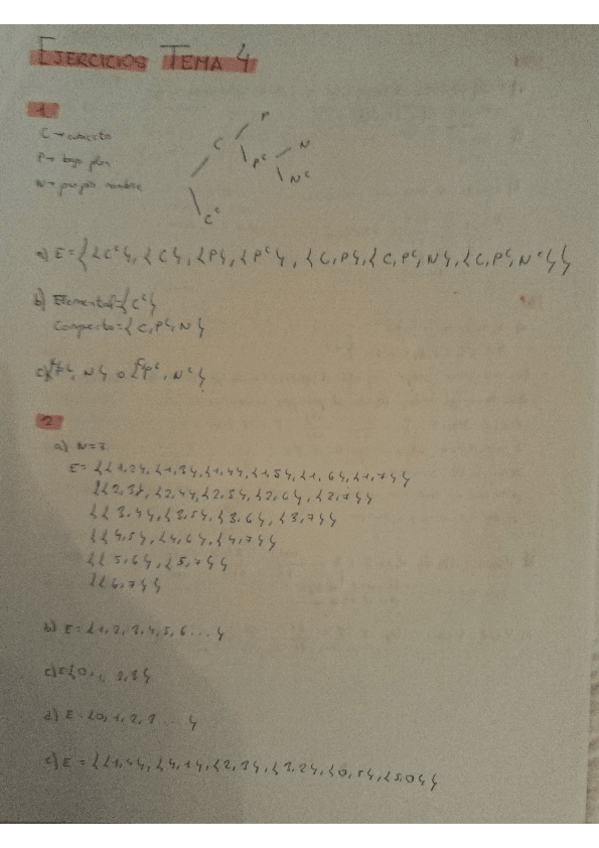 EJERCICIOS TEMA 4
1
C → cubierto
P → bajo plan
N → propio nombre
C
P
Pᶜ
N
Nᶜ
Cᶜ
a) E = { {Cᶜ}, {C}, {P}, {Pᶜ}, {C, P}, {C, Pᶜ, N}, {C, Pᶜ, Nᶜ} }
b) Elemental = {Cᶜ}
Compuesto = { C, Pᶜ, N }
c) , N } o { Pᶜ, Nᶜ }
2
a) N = 7
E = { {1,2}, {1,3}, {1,4}, {1,5}, {1,6}, {1,7} }
{ {2,3}, {2,4}, {2,5}, {2,6}, {2,7} }
{ {3,4}, {3,5}, {3,6}, {3,7} }
{ {4,5}, {4,6}, {4,7} }
{ {5,6}, {5,7} }
{ {6,7} }
b) E = { 1, 2, 3, 4, 5, 6 ... }
c) E { 0, 1, 2, 3 }
d) E = { 0, 1, 2, 3 ... }
e) E = { {1,4}, {4,1}, {2,3}, {3,2}, {0,5}, {5,0} }